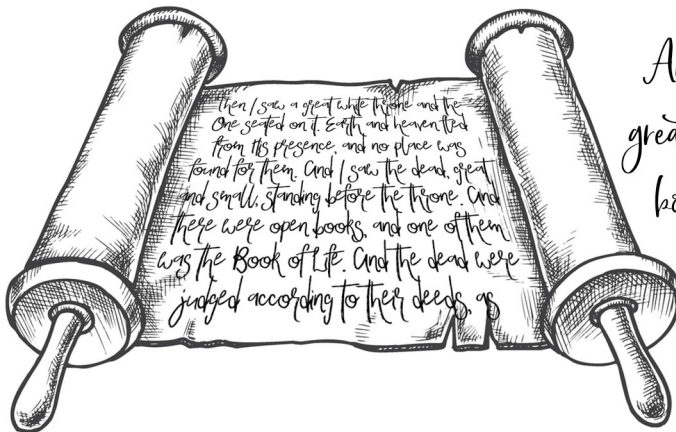 Then I saw a great white throne and the
One seated on it. Earth and heaven fled
from His presence, and no place was
found for them. And I saw the dead, great
and small, standing before the throne. And
there were open books, and one of them
was the Book of Life. And the dead were
judged according to their deeds, as